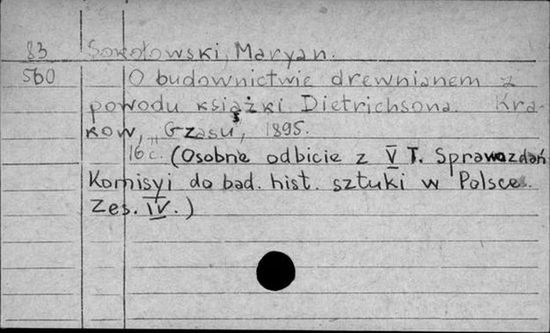 83 Sokołowski, Maryan.
560 O budownictwie drewnianem z
powodu książki Dietrichsona. Kra-
kow, „Czasu", 1895.
16 c. (Osobne odbicie z V T. Sprawozdań
Komisyi do bad. hist. sztuki w Polsce.
Zes. IV.)